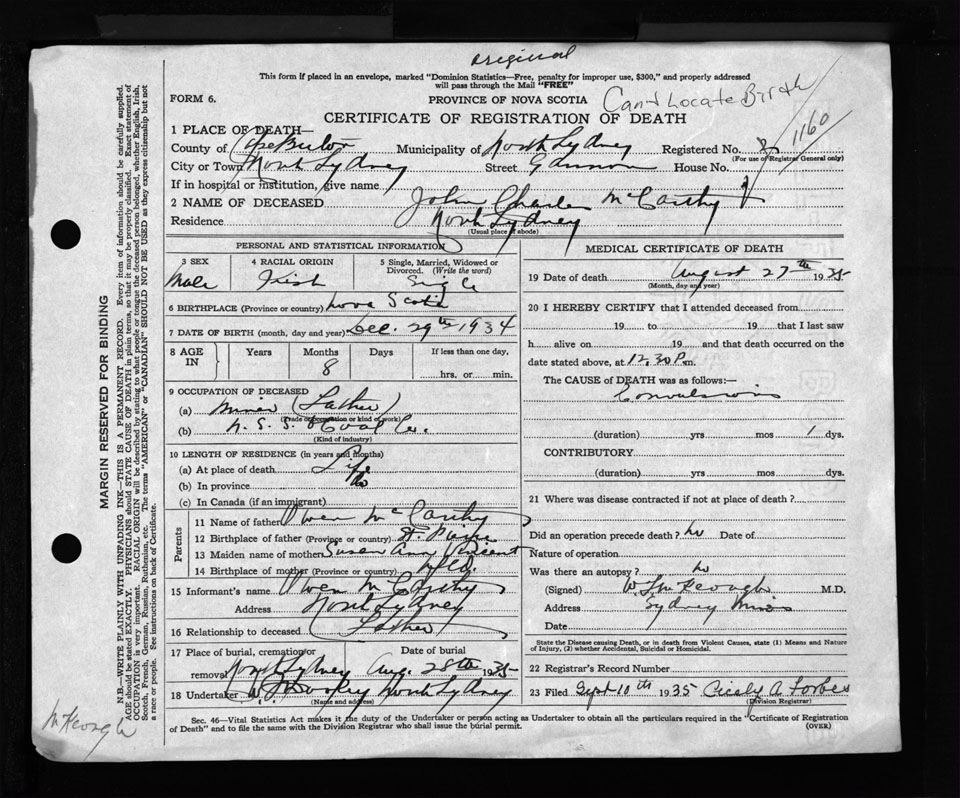 original
This form if placed in an envelope, marked "Dominion Statistics—Free, penalty for improper use, $300," and properly addressed
will pass through the Mail "FREE"
FORM 6.
PROVINCE OF NOVA SCOTIA
Cant Locate Birth
CERTIFICATE OF REGISTRATION OF DEATH
1160
1 PLACE OF DEATH—
County of Cape Breton Municipality of North Sydney Registered No.
(For use of Registrar General only)
City or Town North Sydney Street Gannon House No.
If in hospital or institution, give name
2 NAME OF DECEASED John Charles McCarthy
Residence North Sydney
(Usual place of abode)
PERSONAL AND STATISTICAL INFORMATION
3 SEX 4 RACIAL ORIGIN 5 Single, Married, Widowed or Divorced. (Write the word)
Male Irish Single
6 BIRTHPLACE (Province or country) Nova Scotia
7 DATE OF BIRTH (month, day and year) Dec. 29th 1934
8 AGE IN Years Months Days If less than one day,
8 hrs. or min.
9 OCCUPATION OF DECEASED
(a) Miner (Father)
(Trade occupation or kind of work)
(b) N. S. S. & Coal Co.
(Kind of industry)
10 LENGTH OF RESIDENCE (in years and months)
(a) At place of death Life
(b) In province do
(c) In Canada (if an immigrant)
Parents
11 Name of father Owen McCarthy
12 Birthplace of father (Province or country) St. Pierre
13 Maiden name of mother Susan Ann Vincent
14 Birthplace of mother (Province or country) Nfld.
15 Informant's name Owen McCarthy
Address North Sydney
16 Relationship to deceased Father
17 Place of burial, cremation or removal Date of burial
North Sydney Aug. 28th 1935
18 Undertaker North Sydney
(Name and address)
MEDICAL CERTIFICATE OF DEATH
19 Date of death August 27th 1935
(Month, day and year)
20 I HEREBY CERTIFY that I attended deceased from
19 to 19 that I last saw
h alive on 19 and that death occurred on the
date stated above, at 12.30 P.m.
The CAUSE of DEATH was as follows:—
Convulsions
(duration) yrs mos 1 dys.
CONTRIBUTORY
(duration) yrs mos dys.
21 Where was disease contracted if not at place of death ?
Did an operation precede death ? no Date of
Nature of operation
Was there an autopsy ? no
(Signed) McKeough M.D.
Address Sydney Mines
Date
State the Disease causing Death, or in death from Violent Causes, state (1) Means and Nature
of Injury, (2) whether Accidental, Suicidal or Homicidal.
22 Registrar's Record Number
23 Filed Sept 10th 1935 Cicely A. Forbes
(Division Registrar)
Sec. 46—Vital Statistics Act makes it the duty of the Undertaker or person acting as Undertaker to obtain all the particulars required in the "Certificate of Registration
of Death" and to file the same with the Division Registrar who shall issue the burial permit. (OVER)
MARGIN RESERVED FOR BINDING
N.B.—WRITE PLAINLY WITH UNFADING INK—THIS IS A PERMANENT RECORD. Every item of information should be carefully supplied.
AGE should be stated EXACTLY. PHYSICIANS should STATE CAUSE OF DEATH in plain terms, so that it may be properly classified. Exact statement of
OCCUPATION is very important. RACIAL ORIGIN will be described by stating to what people or tongue the deceased person belonged, whether English, Irish,
Scotch, French, German, Russian, Ruthenian, etc. The terms "AMERICAN" or "CANADIAN" SHOULD NOT BE USED as they express citizenship but not
a race or people. See instructions on back of Certificate.
McKeough